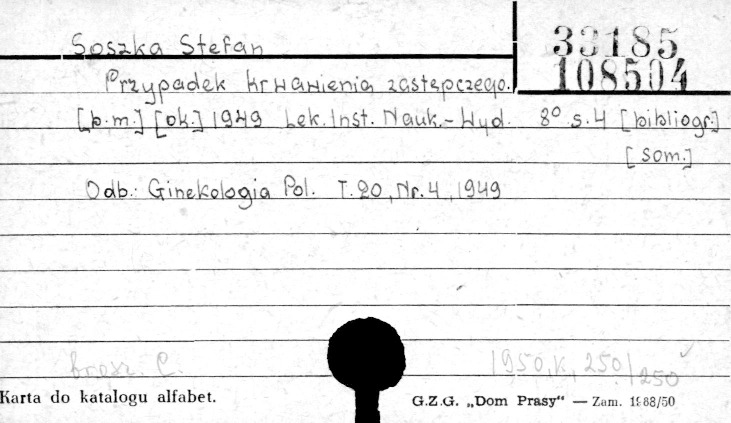 Soszka Stefan
33185
108504
Przypadek krwawienia zastępczego.
[b.m.] [ok.] 1949 Lek. Inst. Nauk.-Wyd. 8° s. 4 [bibliogr.]
[som.]
Odb.: Ginekologia Pol. T. 20, Nr. 4, 1949
brosz. C.
1950, K, 250/250
Karta do katalogu alfabet.
G.Z.G. „Dom Prasy" — Zam. 1868/50